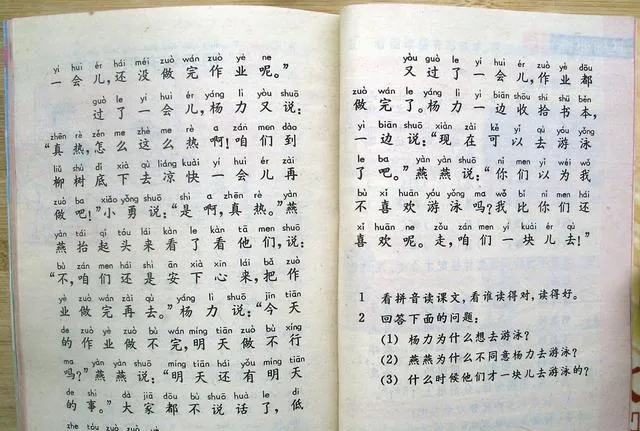 yí huì ér hái méi zuò wán zuò yè ne
一会儿,还没做完作业呢。”
guò le yí huì ér yáng lì yòu shuō
过了一会儿,杨力又说:
zhēn rè zěn me zhè me rè a zán men dào
“真热,怎么这么热啊!咱们到
liǔ shù dǐ xià qù liáng kuài yí huì ér zài
柳树底下去凉快一会儿再
zuò ba xiǎo yǒng shuō shì a zhēn rè yàn
做吧!”小勇说:“是啊,真热。”燕
yàn tái qǐ tóu lái kàn le kàn tā men shuō
燕抬起头来看了看他们,说:
bù zán men hái shì ān xià xīn lái bǎ zuò
“不,咱们还是安下心来,把作
yè zuò wán zài qù yáng lì shuō jīn tiān
业做完再去。”杨力说:“今天
de zuò yè zuò bù wán míng tiān zuò bù xíng
的作业做不完,明天做不行
ma yàn yàn shuō míng tiān hái yǒu míng tiān
吗?”燕燕说:“明天还有明天
de shì dà jiā dōu bù shuō huà le dī
的事。”大家都不说话了,低
zhe tóu zuò zuò yè
yòu guò le yí huì ér zuò yè dōu
又过了一会儿,作业都
zuò wán le yáng lì yì biān shōu shi shū běn
做完了。杨力一边收拾书本,
yì biān shuō xiàn zài kě yǐ qù yóu yǒng
一边说:“现在可以去游泳
le ba yàn yàn shuō nǐ men yǐ wéi wǒ
了吧。”燕燕说:“你们以为我
bù xǐ huān yóu yǒng ma wǒ bǐ nǐ men hái
不喜欢游泳吗?我比你们还
xǐ huān ne zǒu zán men yí kuài ér qù
喜欢呢。走,咱们一块儿去!”
1 看拼音读课文,看谁读得对,读得好。
2 回答下面的问题:
(1) 杨力为什么想去游泳?
(2) 燕燕为什么不同意杨力去游泳?
(3) 什么时候他们才一块儿去游泳的?